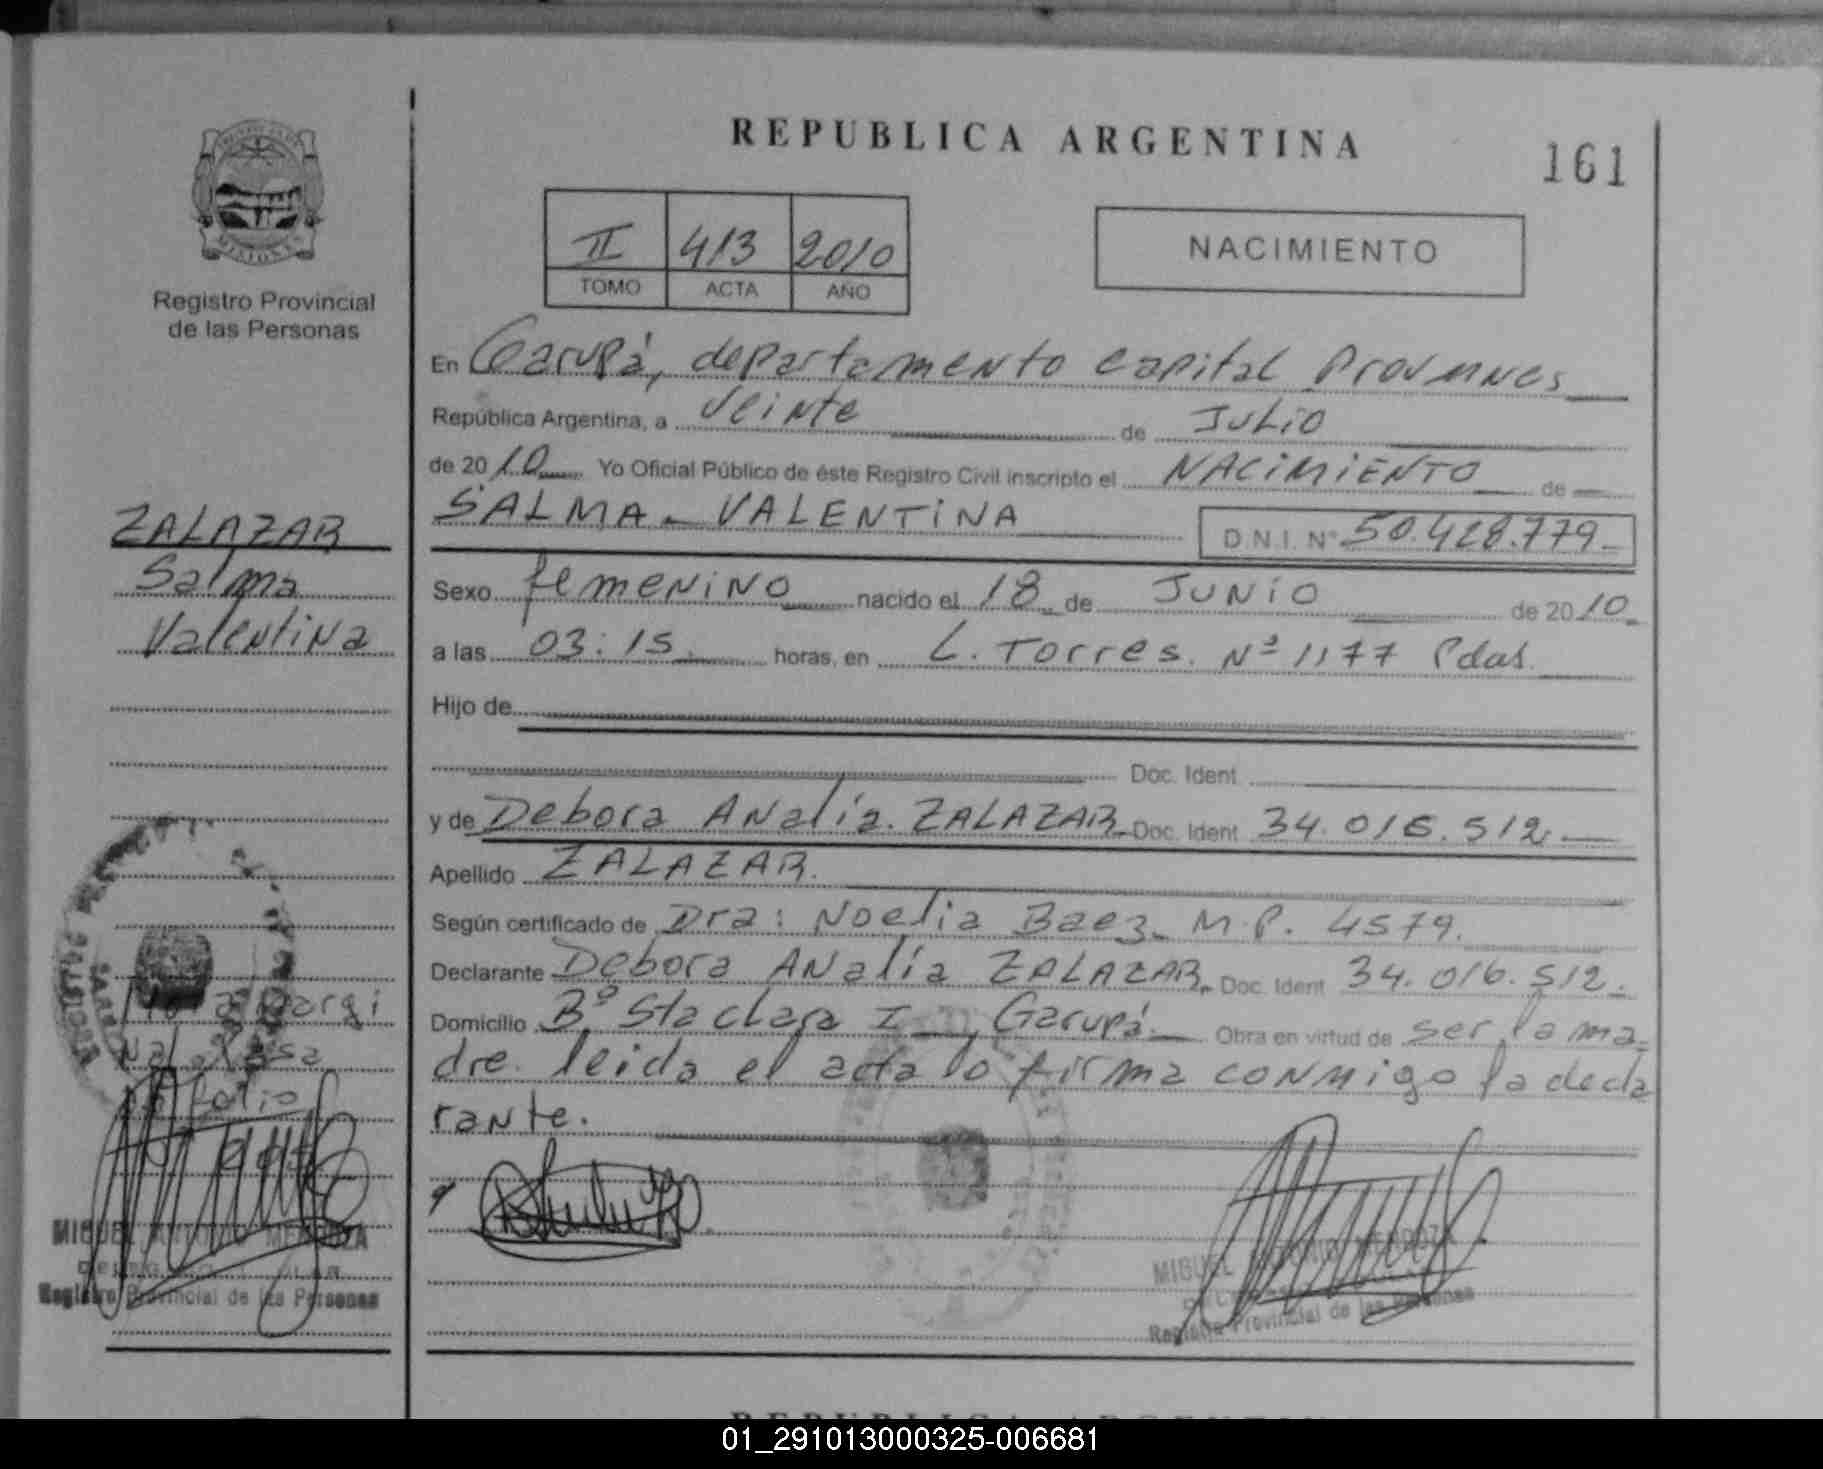 REPUBLICA ARGENTINA
161
II 413 2010
TOMO ACTA AÑO
NACIMIENTO
MISIONES
Registro Provincial
de las Personas
En Garupá, departamento capital
República Argentina, a veinte de Julio
de 2010 Yo Oficial Público de éste Registro Civil inscripto el NACIMIENTO de
SALMA - VALENTINA D.N.I. Nº 50.428.779-
ZALAZAR
Salma
Valentina
Sexo femenino nacido el 18 de JUNIO de 2010
a las 03:15 horas, en L. Torres. Nº 1177 Pdas.
Hijo de
Doc. Ident
y de Debora Analía. ZALAZAR Doc. Ident 34.016.512
Apellido ZALAZAR.
Según certificado de Dra: Noelia Baez M.P. 4579.
Declarante Debora Analía ZALAZAR. Doc. Ident 34.016.512.
Domicilio Bº Sta clara I Garupá. Obra en virtud de ser la ma
dre. leida el acta lo firma conmigo la decla
rante.
folio
MIGUEL ANTONIO MENDOZA
Registro Provincial de las Personas
MIGUEL ANTONIO MENDOZA
Registro Provincial de las Personas
REPUBLICA ARGENTINA
01_291013000325-006681